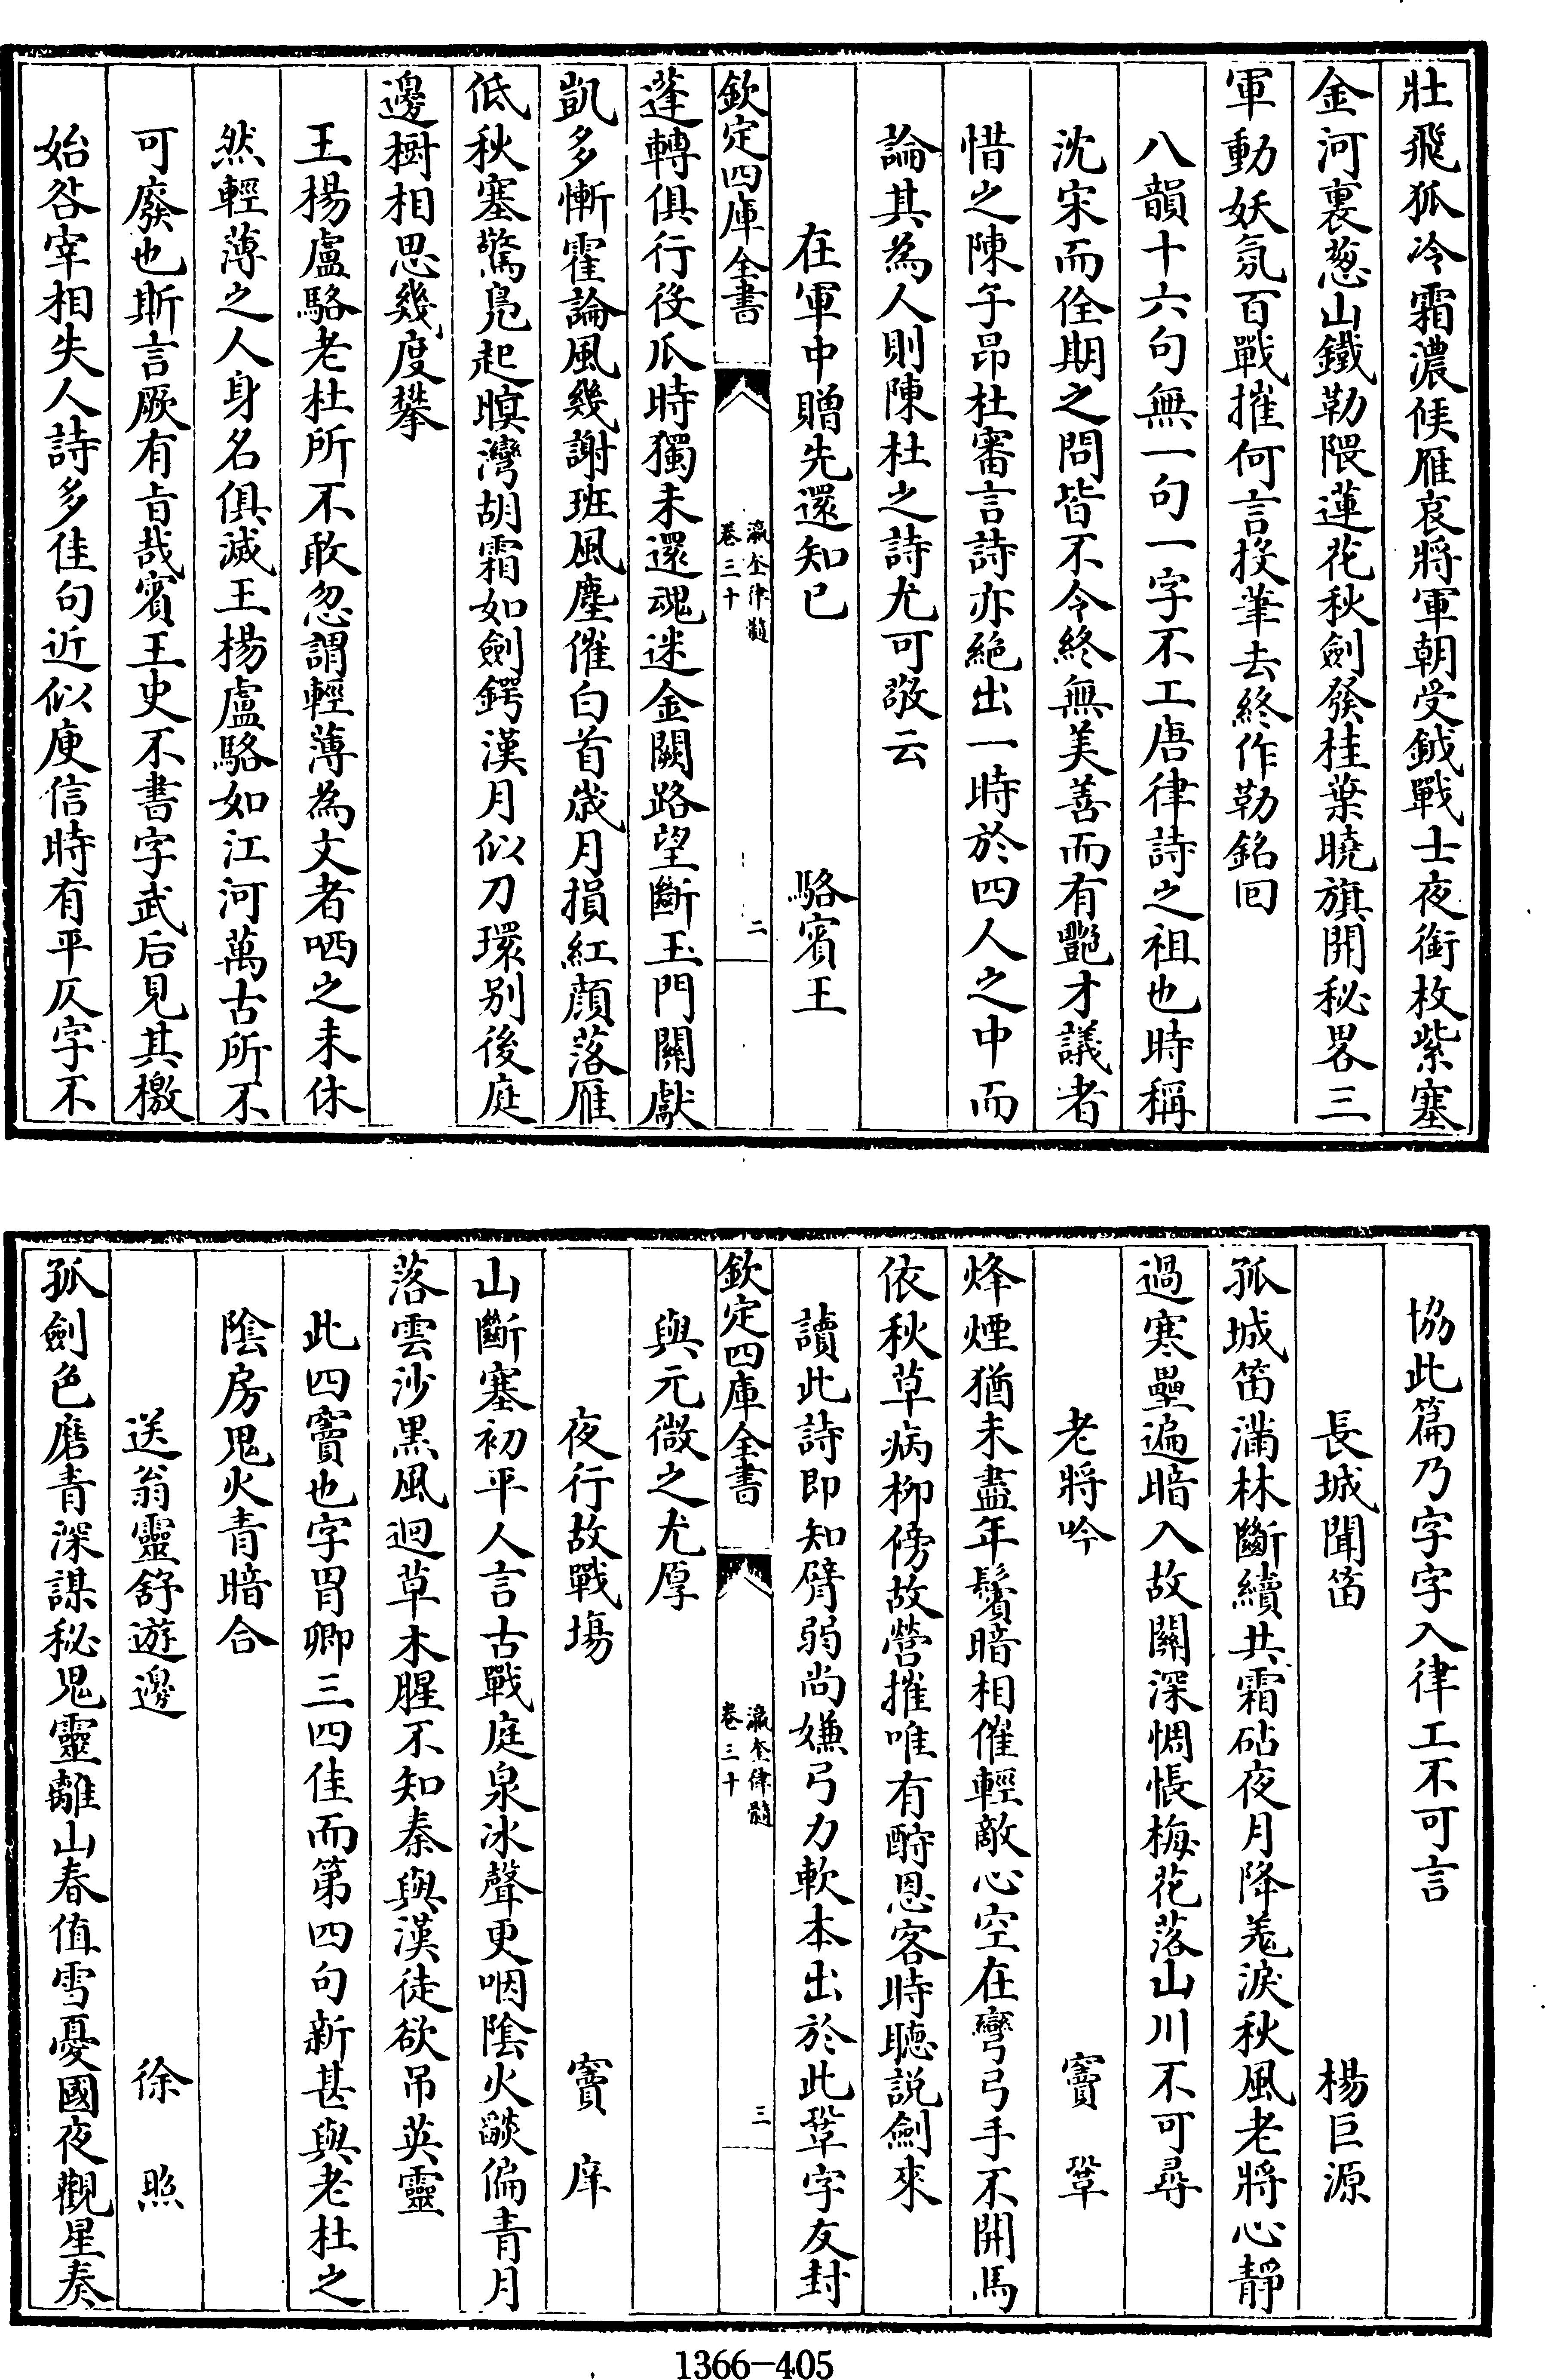 壯飛狐冷霜濃候雁哀將軍朝受鉞戰士夜銜枚紫塞
金河裏葱山鐵勒隈蓮花秋劍發桂葉曉旗開秘畧三
軍動妖氛百戰摧何言投筆去終作勒銘回
八韻十六句無一句一字不工唐律詩之祖也時稱
沈宋而佺期之問皆不令終無美善而有艷才議者
惜之陳子昂杜審言詩亦絕出一時於四人之中而
論其為人則陳杜之詩尤可敬云
在軍中贈先還知已 駱賓王
欽定四庫全書 瀛奎律髓 卷三十 二
蓬轉俱行役瓜時獨未還魂迷金闕路望斷玉門關獻
凱多慚霍論風幾謝班風塵催白首歲月損紅顏落雁
低秋塞驚鳧起暝灣胡霜如劍鍔漢月似刀環别後庭
邊樹相思幾度攀
王楊盧駱老杜所不敢忽謂輕薄為文者哂之未休
然輕薄之人身名俱滅王楊盧駱如江河萬古所不
可廢也斯言厥有旨哉賓王史不書字武后見其檄
始咎宰相失人詩多佳句近似庾信時有平仄字不
協此篇乃字字入律工不可言
長城聞笛 楊巨源
孤城笛滿林斷續共霜砧夜月降羌淚秋風老將心靜
過寒壘遍暗入故關深惆悵梅花落山川不可尋
老將吟 竇鞏
烽煙猶未盡年鬢暗相催輕敵心空在彎弓手不開馬
依秋草病柳傍故營摧唯有酧恩客時聽説劍來
讀此詩即知臂弱尚嫌弓力軟本出於此鞏字友封
欽定四庫全書 瀛奎律髓 卷三十 三
與元微之尤厚
夜行故戰塲 竇庠
山斷塞初平人言古戰庭泉冰聲更咽陰火燄偏青月
落雲沙黑風迴草木腥不知秦與漢徒欲吊英靈
此四竇也字胃卿三四佳而第四句新甚與老杜之
陰房鬼火青暗合
送翁靈舒遊邊 徐照
孤劍色磨青深謀秘鬼靈離山春值雪憂國夜觀星奏
1366-405